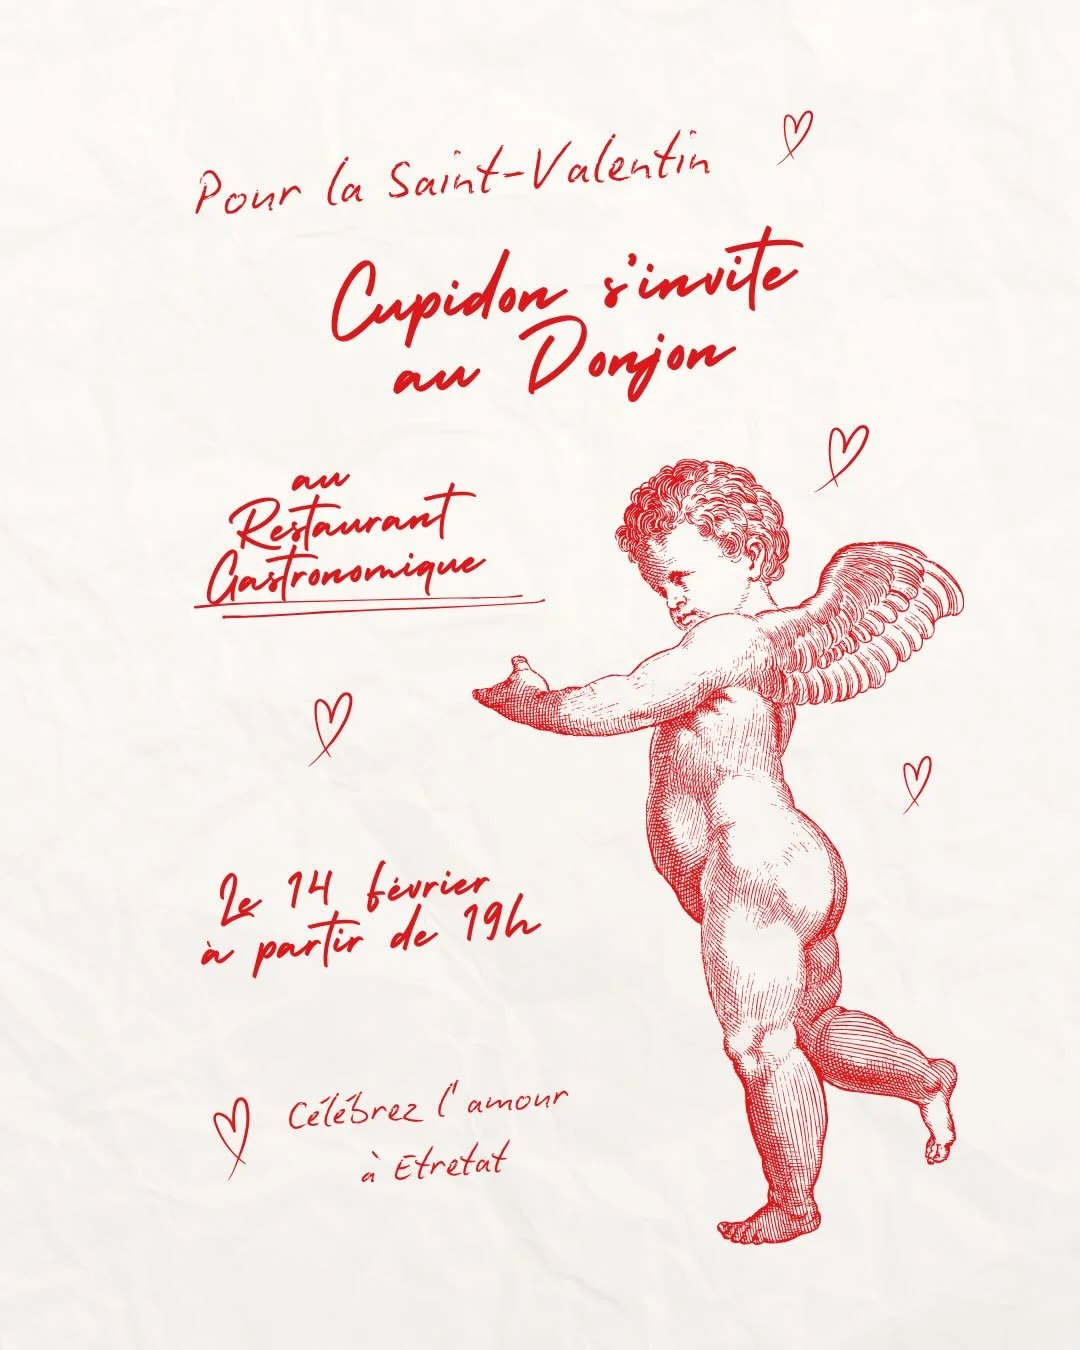 Pour la Saint-Valentin
Cupidon s'invite
au Donjon
au
Restaurant
Gastronomique
Le 14 février
à partir de 19h
Célébrez l'amour
à Etretat